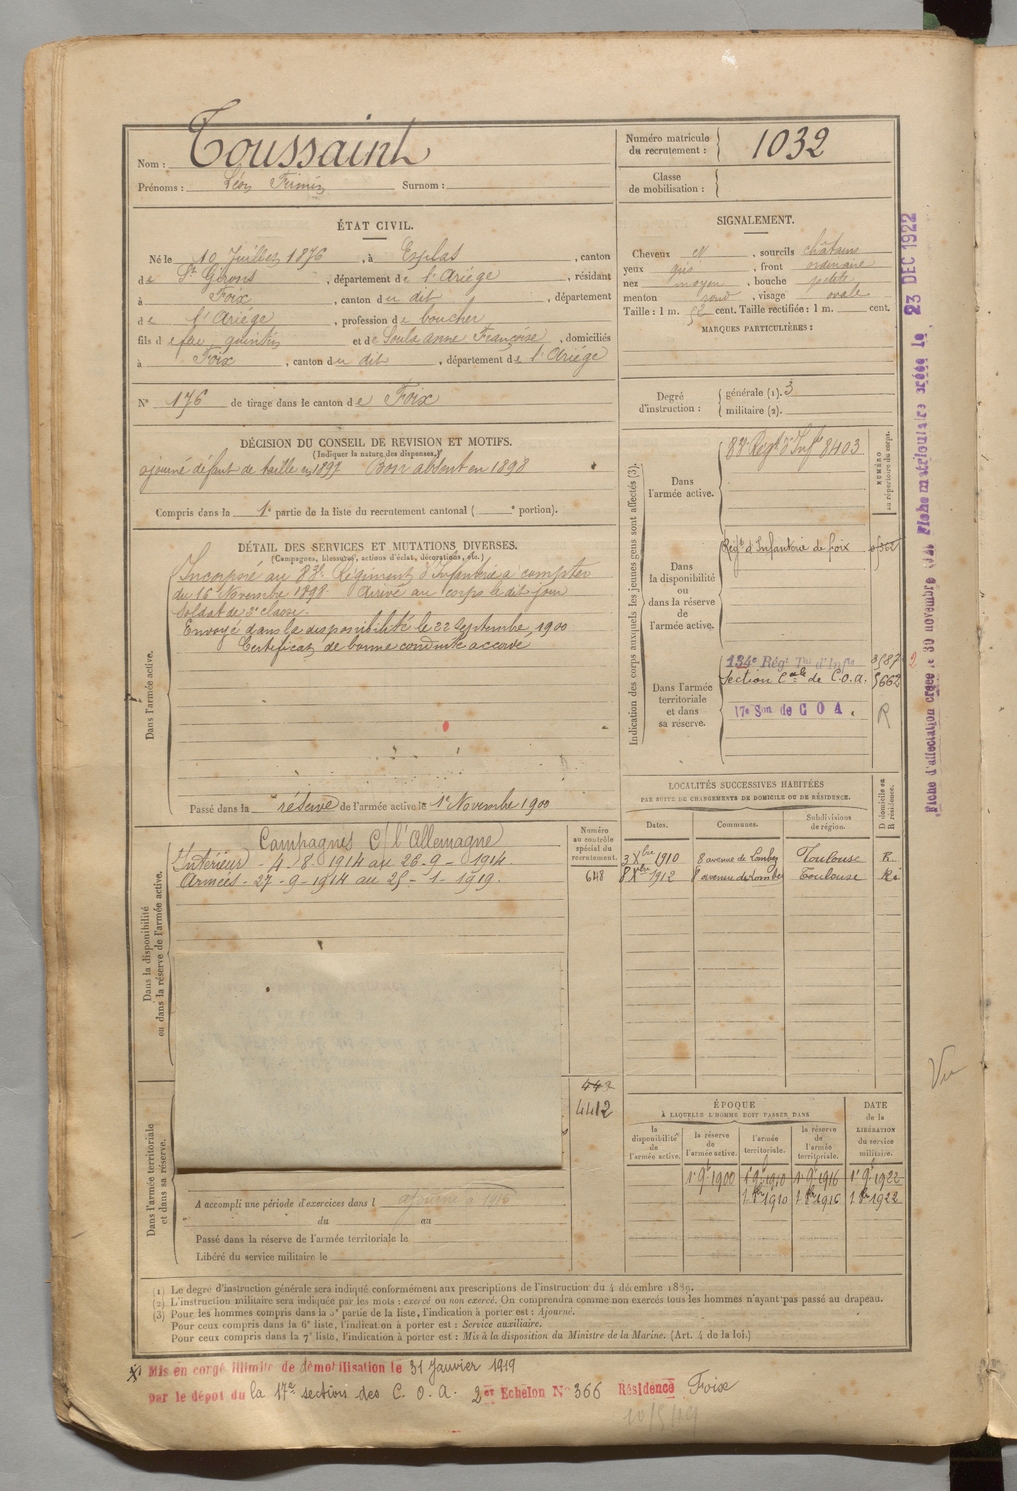 Nom : Toussaint
Prénoms : Léon Firmin Surnom :
Numéro matricule du recrutement : 1032
Classe de mobilisation :
ÉTAT CIVIL.
Né le 10 Juillet 1876, à Esplas, canton
de St Girons, département de l'Ariége, résidant
à Foix, canton du dit, département
de l'Ariége, profession de boucher
fils de feu quentin et de Soula Anne Françoise, domiciliés
à Foix, canton du dit, département de l'Ariége
N° 176 de tirage dans le canton de Foix
SIGNALEMENT.
Cheveux et, sourcils châtains
yeux gris, front ordinaire
nez moyen, bouche petite
menton rond, visage ovale
Taille : 1 m. 52 cent. Taille rectifiée : 1 m. cent.
MARQUES PARTICULIÈRES :
Degré d'instruction : générale (1). 3
militaire (2).
DÉCISION DU CONSEIL DE REVISION ET MOTIFS.
(Indiquer la nature des dispenses.)
ajourné défaut de taille en 1897 Bon absent en 1898
Compris dans la 1e partie de la liste du recrutement cantonal ( e portion).
DÉTAIL DES SERVICES ET MUTATIONS DIVERSES.
(Campagnes, blessures, actions d'éclat, décorations, etc.)
Dans l'armée active.
Incorporé au 83e Régiment d'Infanterie à compter
du 16 Novembre 1898. Arrivé au corps le dit jour
Soldat de 2e classe.
Envoyé dans la disponibilité le 22 Septembre 1900
Certificat de bonne conduite accordé
Passé dans la réserve de l'armée active le 1er Novembre 1900
Indication des corps auxquels les jeunes gens sont affectés (3).
NUMÉRO au répertoire du corps.
Dans l'armée active.
83e Régt d'Infie 8403
Dans la disponibilité ou dans la réserve de l'armée active.
Régt d'Infanterie de foix
Dans l'armée territoriale et dans sa réserve.
134e Régt Tal d'Infie
Section Cale de C.O.a. 5662
17e Son de C O A. R
Dans la disponibilité ou dans la réserve de l'armée active.
Campagnes C/ l'Allemagne
Intérieur - 4-8-1914 au 26-9-1914.
Armées - 27-9-1914 au 25-1-1919.
Numéro au contrôle spécial du recrutement.
648
442
4412
LOCALITÉS SUCCESSIVES HABITÉES
PAR SUITE DE CHANGEMENTS DE DOMICILE OU DE RÉSIDENCE.
Dates. Communes. Subdivisions de région. D domicile ou R résidence.
3 Xbre 1910 8 avenue de Lombez Toulouse R.
8 Xbre 1912 8 avenue de Lombez Toulouse R
ÉPOQUE
À LAQUELLE L'HOMME DOIT PASSER DANS
la disponibilité de l'armée active. la réserve de l'armée active. l'armée territoriale. la réserve de l'armée territoriale. DATE de la LIBÉRATION du service militaire.
1er 9bre 1900 1er 9bre 1910 1er 9bre 1916 1er 9bre 1922
1 8bre 1910 1 8bre 1916 1 8bre 1922
Dans l'armée territoriale et dans sa réserve.
A accompli une période d'exercices dans l
du au
Passé dans la réserve de l'armée territoriale le
Libéré du service militaire le
(1) Le degré d'instruction générale sera indiqué conformément aux prescriptions de l'instruction du 4 décembre 1889.
(2) L'instruction militaire sera indiquée par les mots : exercé ou non exercé. On comprendra comme non exercés tous les hommes n'ayant pas passé au drapeau.
(3) Pour les hommes compris dans la 5e partie de la liste, l'indication à porter est : Ajourné.
Pour ceux compris dans la 6e liste, l'indication à porter est : Service auxiliaire.
Pour ceux compris dans la 7e liste, l'indication à porter est : Mis à la disposition du Ministre de la Marine. (Art. 4 de la loi.)
Mis en congé illimité de démobilisation le 31 Janvier 1919
par le dépôt du la 17e section des C. O. A. 2er Echelon N° 366 Résidence Foix
10/5/19
Vu
Fiche d'affectation créée le 30 novembre Fiche matriculaire créée le 23 DEC 1922